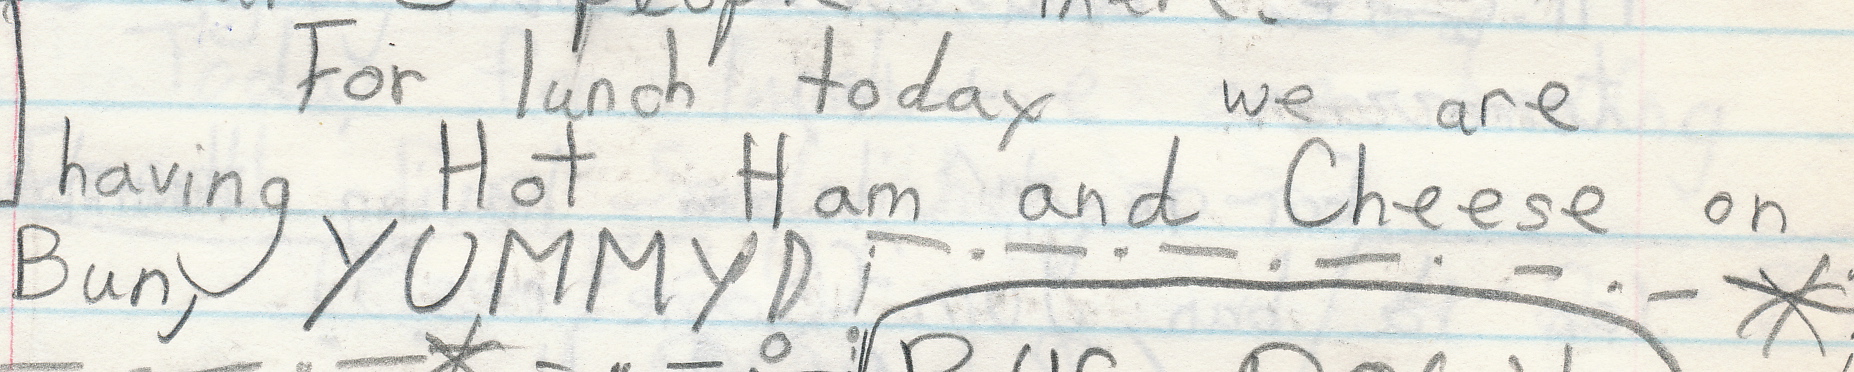 people there.
For lunch today we are
having Hot Ham and Cheese on
Bun, YUMMY D!